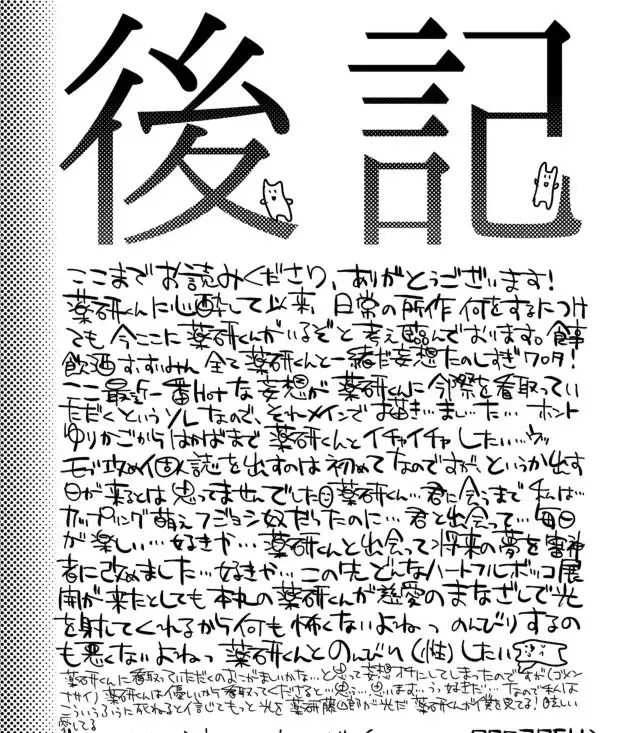 後記
ここまでお読みくださり、ありがとうございます!
薬研くんに心酔して以来、日常の所作 何をするにつけ
ても 今ここに薬研くんがいるぞと考え臨んでおります。食事
飲酒 すいみん 全て薬研くんと一緒だ妄想たのしすぎワロタ!
ここ最近一番Hotな妄想が薬研くんに今際を看取ってい
ただくというソレなので、それメインでお描き…まし…た… ホント
ゆりかごからはかばまで薬研くんとイチャイチャしたい…ウッ
モブ攻め個人誌を出すのは初めてなのですが、というか出す
日が来るとは思ってませんでした 薬研くん…君に会うまで私は…
カップリング萌えフジョシ奴だったのに…君と出会って…毎日
が楽しい…好きや…薬研くんと出会って将来の夢を審神
者に改めました…好きや…この先どんなハートフルボッコ展
開が来たとしても本丸の薬研くんが慈愛のまなざしで光
を射してくれるから何も怖くないよねっ のんびりするの
も悪くないよねっ 薬研くんとのんびり(性)したい
薬研くんに看取っていただくのおこがましいかな…と思って妄想オチにしてしまったのですが(ゴメン
ナサイ)薬研くんは優しいから看取ってくださると…思う…思います…うっ好きだ…なので私は
こういうふうに死ねると信じてもっと光を 薬研藤四郎が光だ 薬研くんが僕を見てる!眩しい
愛してる